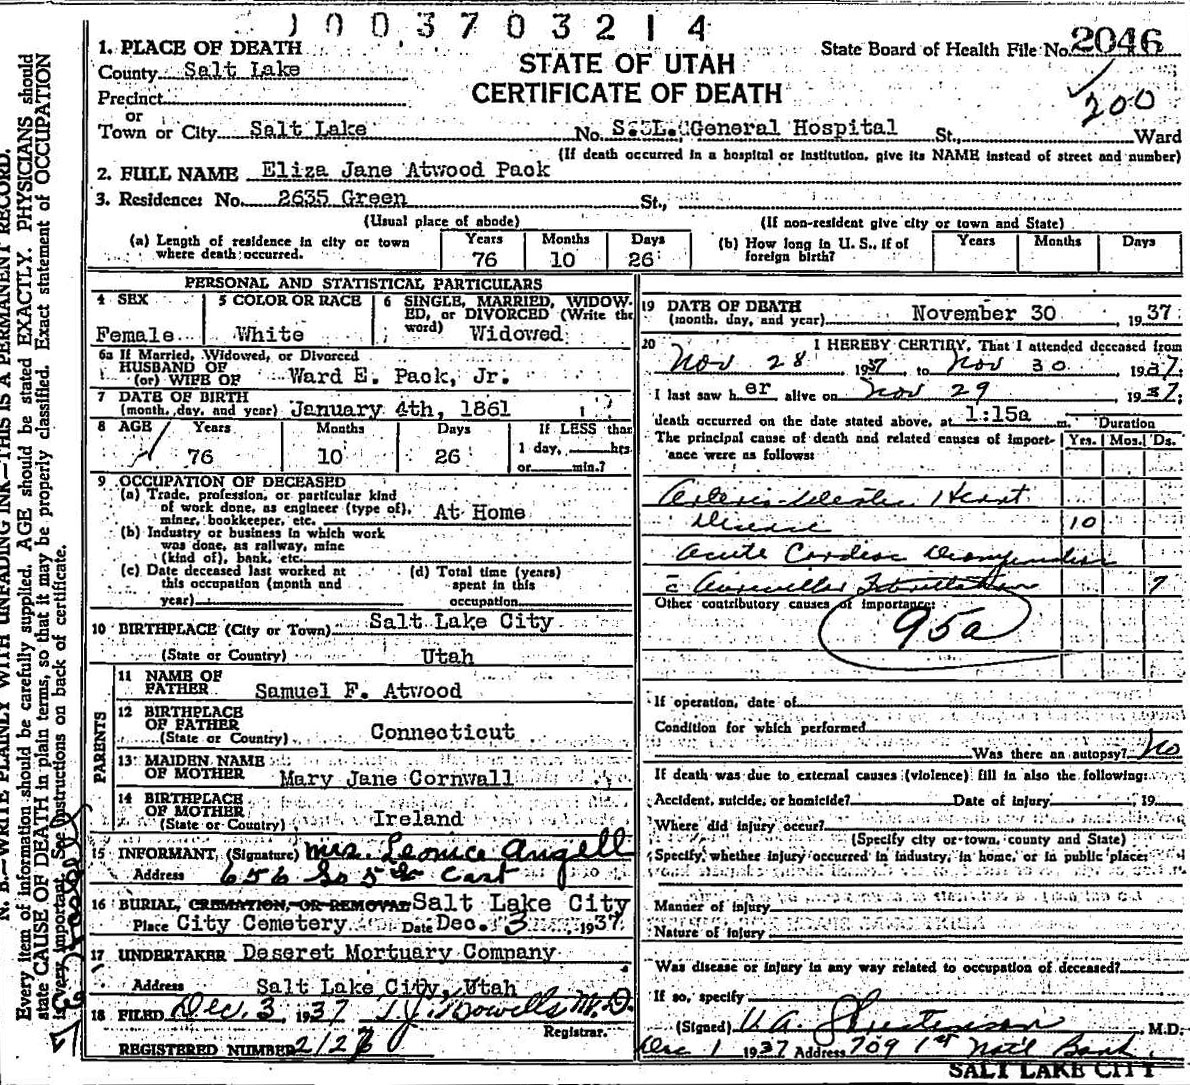 1003703214
1. PLACE OF DEATH
County Salt Lake
Precinct
or
Town or City Salt Lake No. S. L. General Hospital St., Ward
(If death occurred in a hospital or institution, give its NAME instead of street and number)
STATE OF UTAH
CERTIFICATE OF DEATH
State Board of Health File No. 2046
200
2. FULL NAME Eliza Jane Atwood Pack
3. Residence: No. 2635 Green St.,
(Usual place of abode) (If non-resident give city or town and State)
(a) Length of residence in city or town where death occurred. Years 76 Months 10 Days 26
(b) How long in U. S., if of foreign birth? Years Months Days
PERSONAL AND STATISTICAL PARTICULARS
4 SEX Female
5 COLOR OR RACE White
6 SINGLE, MARRIED, WIDOWED, or DIVORCED (Write the word) Widowed
6a If Married, Widowed, or Divorced
HUSBAND OF
(or) WIFE OF Ward E. Pack, Jr.
7 DATE OF BIRTH
(month, day, and year) January 4th, 1861
8 AGE Years 76 Months 10 Days 26 If LESS than 1 day, hrs. or min.?
9 OCCUPATION OF DECEASED
(a) Trade, profession, or particular kind
of work done, as engineer (type of),
miner, bookkeeper, etc. At Home
(b) Industry or business in which work
was done, as railway, mine
(kind of), bank, etc.
(c) Date deceased last worked at
this occupation (month and
year)
(d) Total time (years)
spent in this
occupation
10 BIRTHPLACE (City or Town) Salt Lake City
(State or Country) Utah
PARENTS
11 NAME OF
FATHER Samuel F. Atwood
12 BIRTHPLACE
OF FATHER
(State or Country) Connecticut
13 MAIDEN NAME
OF MOTHER Mary Jane Cornwall
14 BIRTHPLACE
OF MOTHER
(State or Country) Ireland
15 INFORMANT (Signature) Mrs. Leonice Angell
Address 656 So 5th East
16 BURIAL, CREMATION, OR REMOVAL Salt Lake City
Place City Cemetery Date Dec. 3, 1937
17 UNDERTAKER Deseret Mortuary Company
Address Salt Lake City, Utah
18 FILED Dec. 3 1937 T. J. Howells M.D.
Registrar.
REGISTERED NUMBER 2126
19 DATE OF DEATH
(month, day, and year) November 30, 1937
20 I HEREBY CERTIFY, That I attended deceased from
Nov 28 1937 to Nov 30 1937
I last saw her alive on Nov 29 1937;
death occurred on the date stated above, at 1:15a m.
The principal cause of death and related causes of importance were as follows:
Duration
Yrs. Mos. Ds.
Arterio-sclerotic Heart
Disease 10
Acute Cardiac Decompensation
c̄ Auricular Fibrillation 7
Other contributory causes of importance:
95a
If operation, date of
Condition for which performed
Was there an autopsy? No
If death was due to external causes (violence) fill in also the following:
Accident, suicide, or homicide? Date of injury , 19
Where did injury occur?
(Specify city or town, county and State)
Specify, whether injury occurred in industry, in home, or in public place:
Manner of injury
Nature of injury
Was disease or injury in any way related to occupation of deceased?
If so, specify
(Signed) , M.D.
Dec 1 1937 Address 709 1st Nat'l Bank
SALT LAKE CITY
N. B.—WRITE PLAINLY WITH UNFADING INK—THIS IS A PERMANENT RECORD.
Every item of information should be carefully supplied. AGE should be stated EXACTLY. PHYSICIANS should
state CAUSE OF DEATH in plain terms, so that it may be properly classified. Exact statement of OCCUPATION
is very important. See instructions on back of certificate.